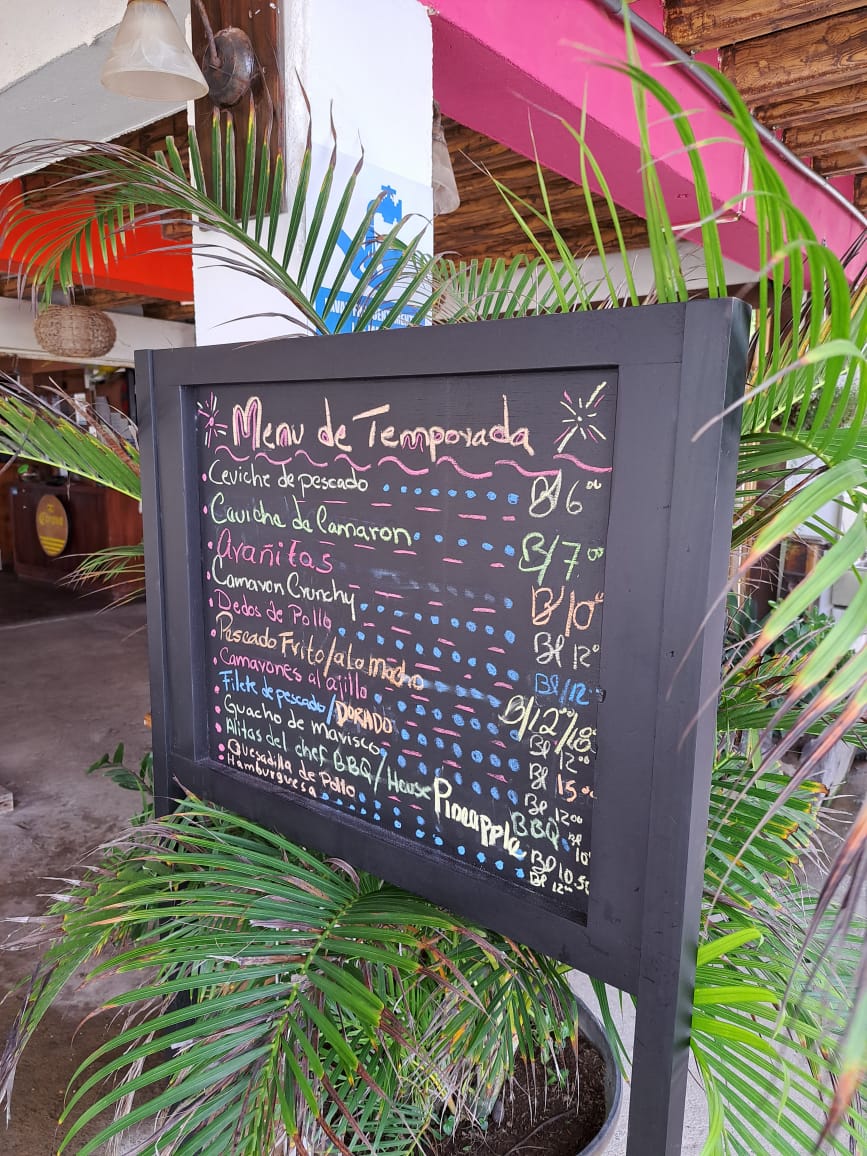 Menu de Temporada
Ceviche de pescado B/6.00
Caviche de Camaron B/7.00
Arañitas B/10.
Camaron Crunchy B/ 12.
Dedos de Pollo B/12.
Pescado Frito/a lo macho B/12.00/18.
Camarones al ajillo B/ 12.00
Filete de pescado/DORADO B/ 15.00
Guacho de marisco B/ 12.00
Alitas del chef BBQ/House Pineapple BBQ B/ 10.
Quesadilla de Pollo B/ 10.50
Hamburguesa B/ 12.